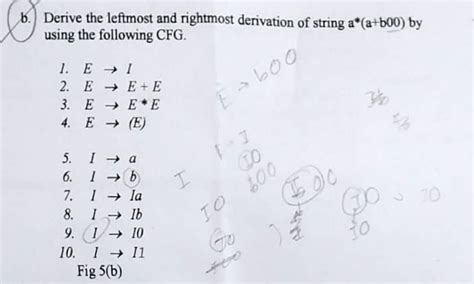 b. Derive the leftmost and rightmost derivation of string a*(a+b00) by
using the following CFG.
1. E → I
2. E → E + E
3. E → E * E
4. E → (E)
5. I → a
6. I → b
7. I → Ia
8. I → Ib
9. I → I0
10. I → I1
Fig 5(b)
E → b00
I
I0
b00
I0
I00
I0
I0